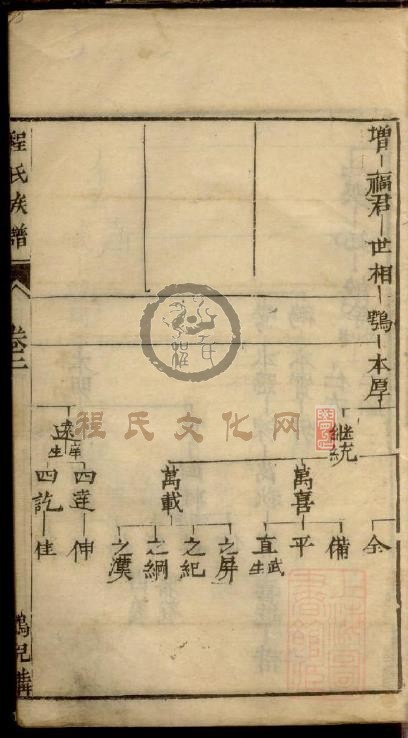 增 福君 世相 鶚 本厚
継統
萬喜
萬載
遠庠生
四達
四訖
全
備
平
直武生
之屏
之紀
之綱
之漢
伸
佳
程氏族譜
卷二
程氏文化网